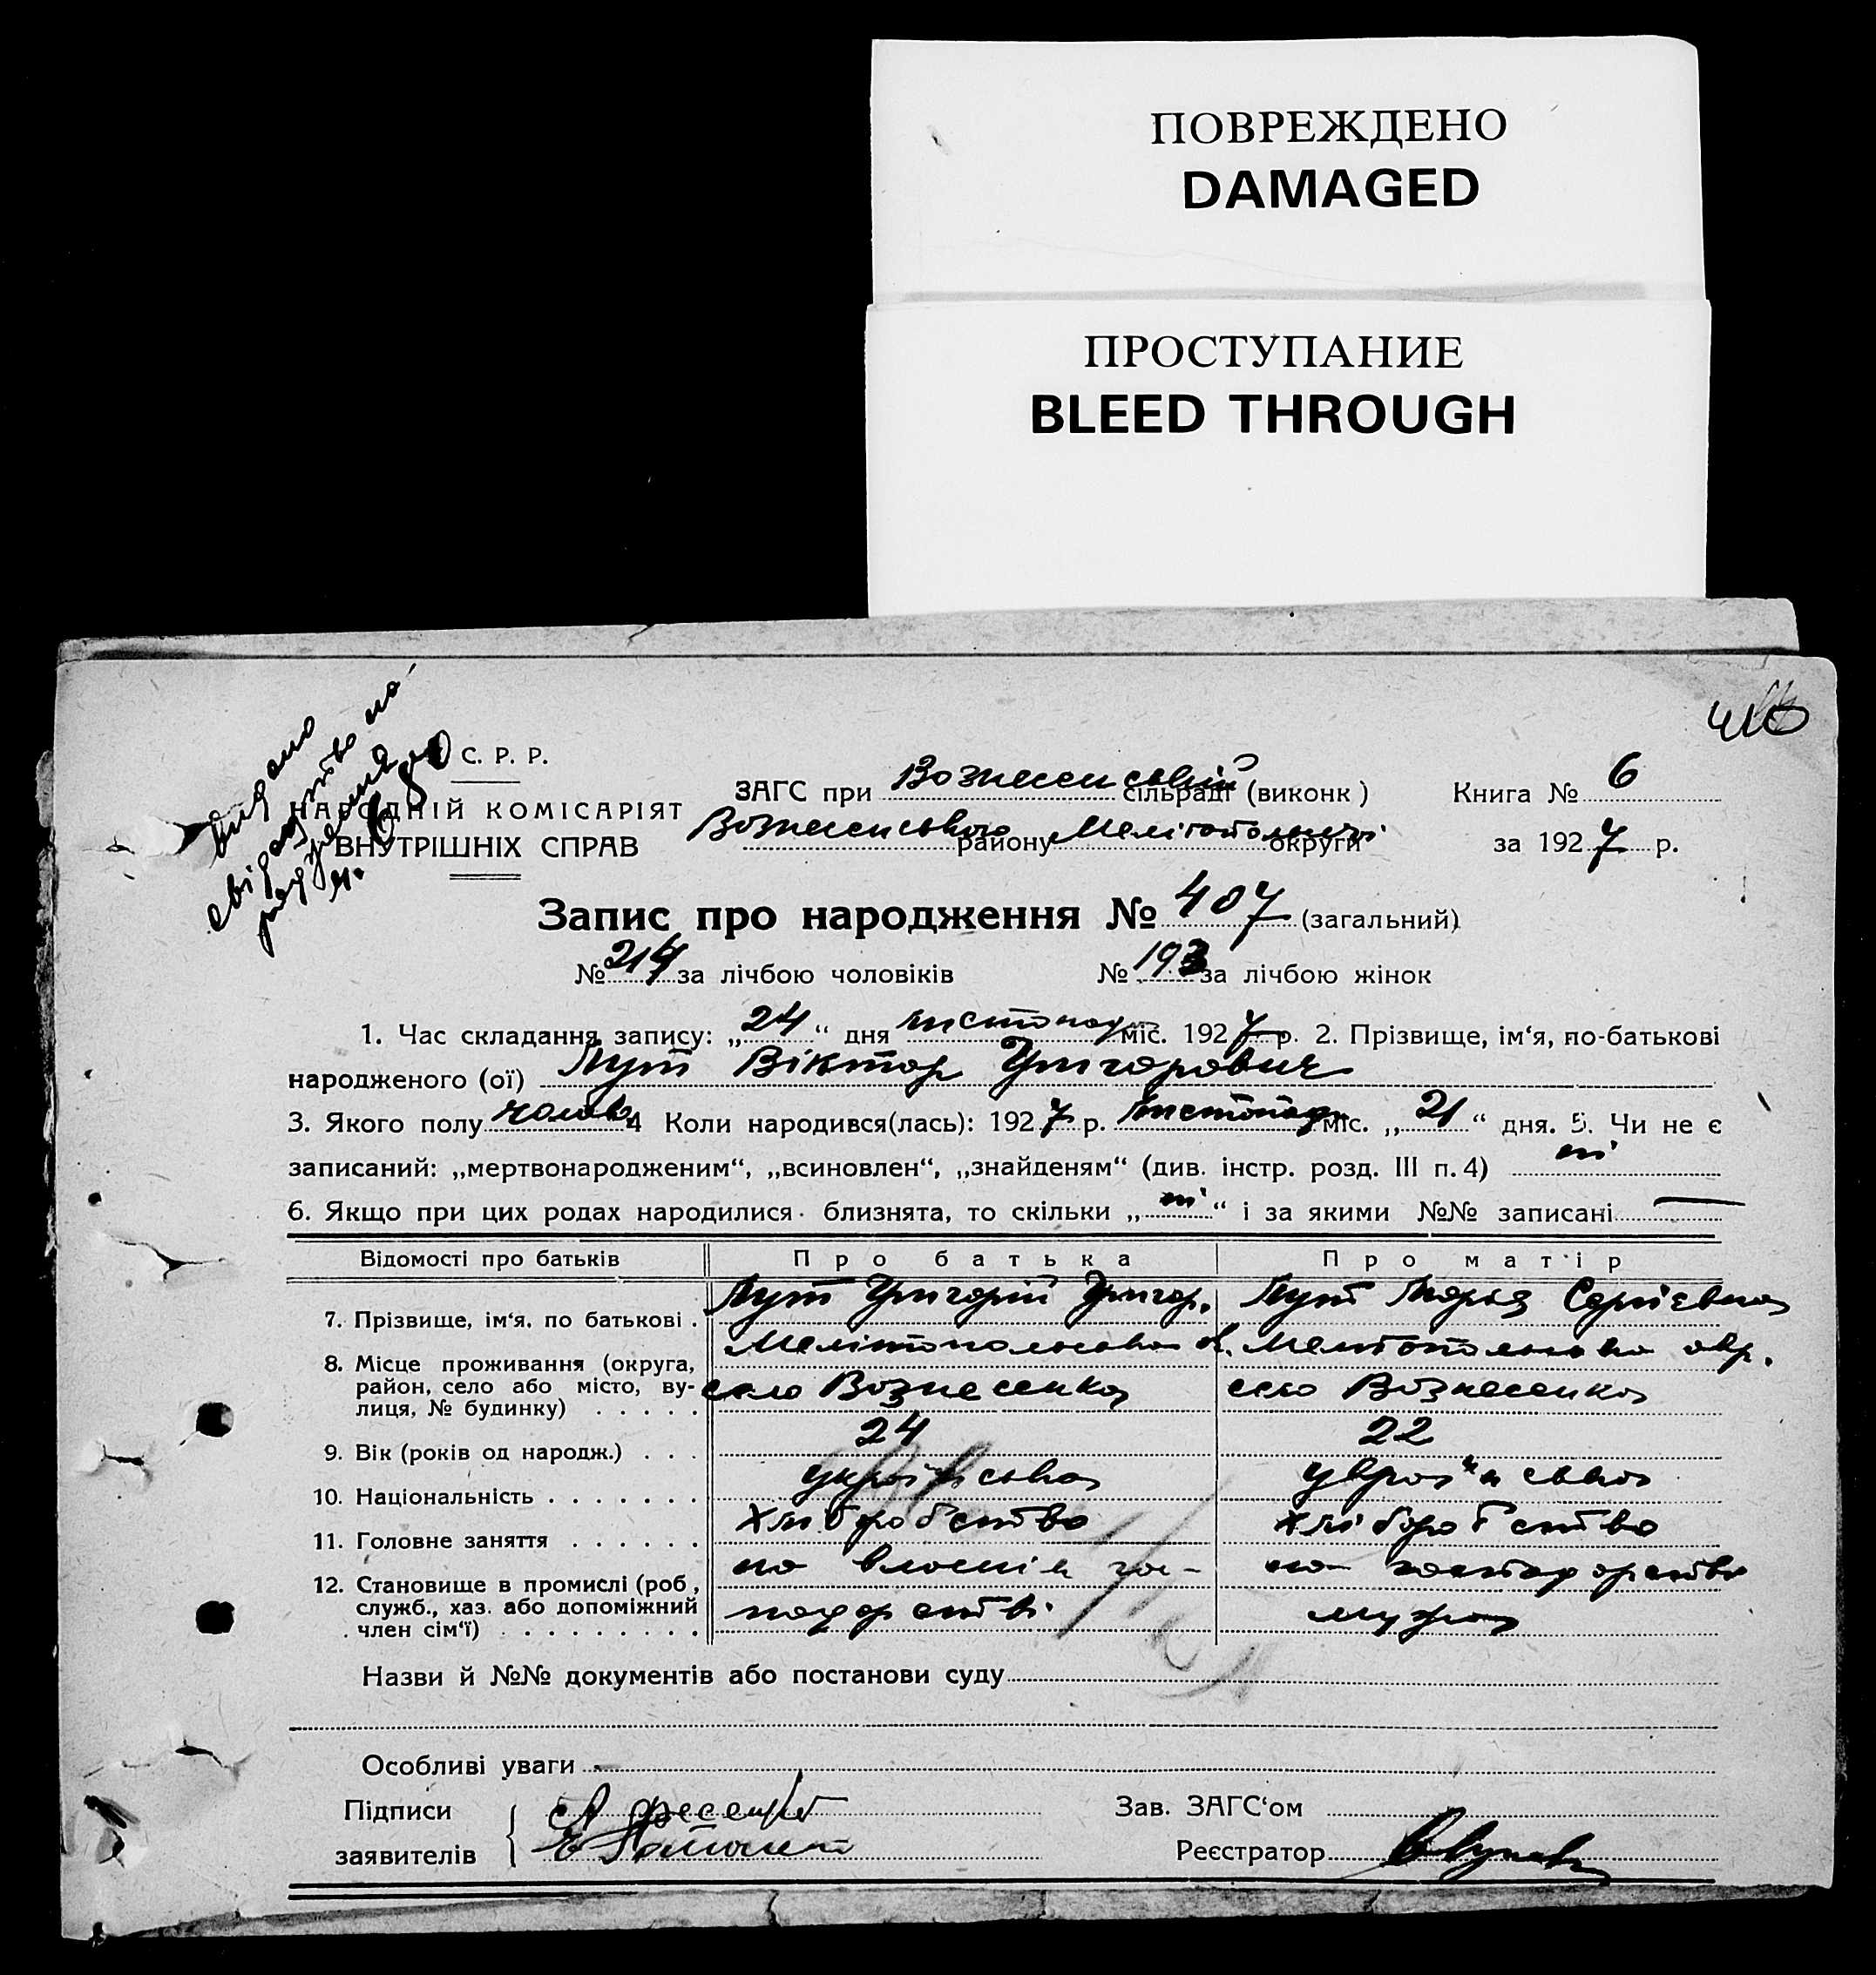 ПОВРЕЖДЕНО
DAMAGED
ПРОСТУПАНИЕ
BLEED THROUGH
410
видано
свідоцтво на
народження
№ 680
С. Р. Р.
НАРОДНІЙ КОМІСАРІЯТ
ВНУТРІШНІХ СПРАВ
ЗАГС при Вознесенській сільраді (виконк)
Вознесенського району Мелітопольської округи
Книга № 6
за 1927 р.
Запис про народження № 407 (загальний)
№ 214 за лічбою чоловіків № 193 за лічбою жінок
1. Час складання запису: „24“ дня листопад міс. 1927 р. 2. Прізвище, ім‘я, по-батькові
народженого (ої) Лут Віктор Григорович
3. Якого полу чолов 4 Коли народився(лась): 1927 р. листопад міс. „21“ дня. 5. Чи не є
записаний: „мертвонародженим“, „всиновлен“, „знайденям“ (див. інстр. розд. III п. 4) ні
6. Якщо при цих родах народилися близнята, то скільки „ні“ і за якими №№ записані —
Відомості про батьків Про батька Про матір
7. Прізвище, ім‘я, по батькові . Лут Григорій Григор. Лут Марья Сергієвна
8. Місце проживання (округа, район, село або місто, ву-лиця, № будинку) . . . . . Мелітопольська о. село Вознесенка Мелітопольська окр. село Вознесенка
9. Вік (років од народж.) . . . 24 22
10. Національність . . . . . . . українська українська
11. Головне заняття . . . . . . хліборобство хліборобство
12. Становище в промислі (роб., служб., хаз. або допоміжний член сім‘ї) . . . . . . . . . на власнім гос-подарстві на господарстві мужа
Назви й №№ документів або постанови суду
Особливі уваги
Підписи
заявителів
Зав. ЗАГС‘ом
Реєстратор